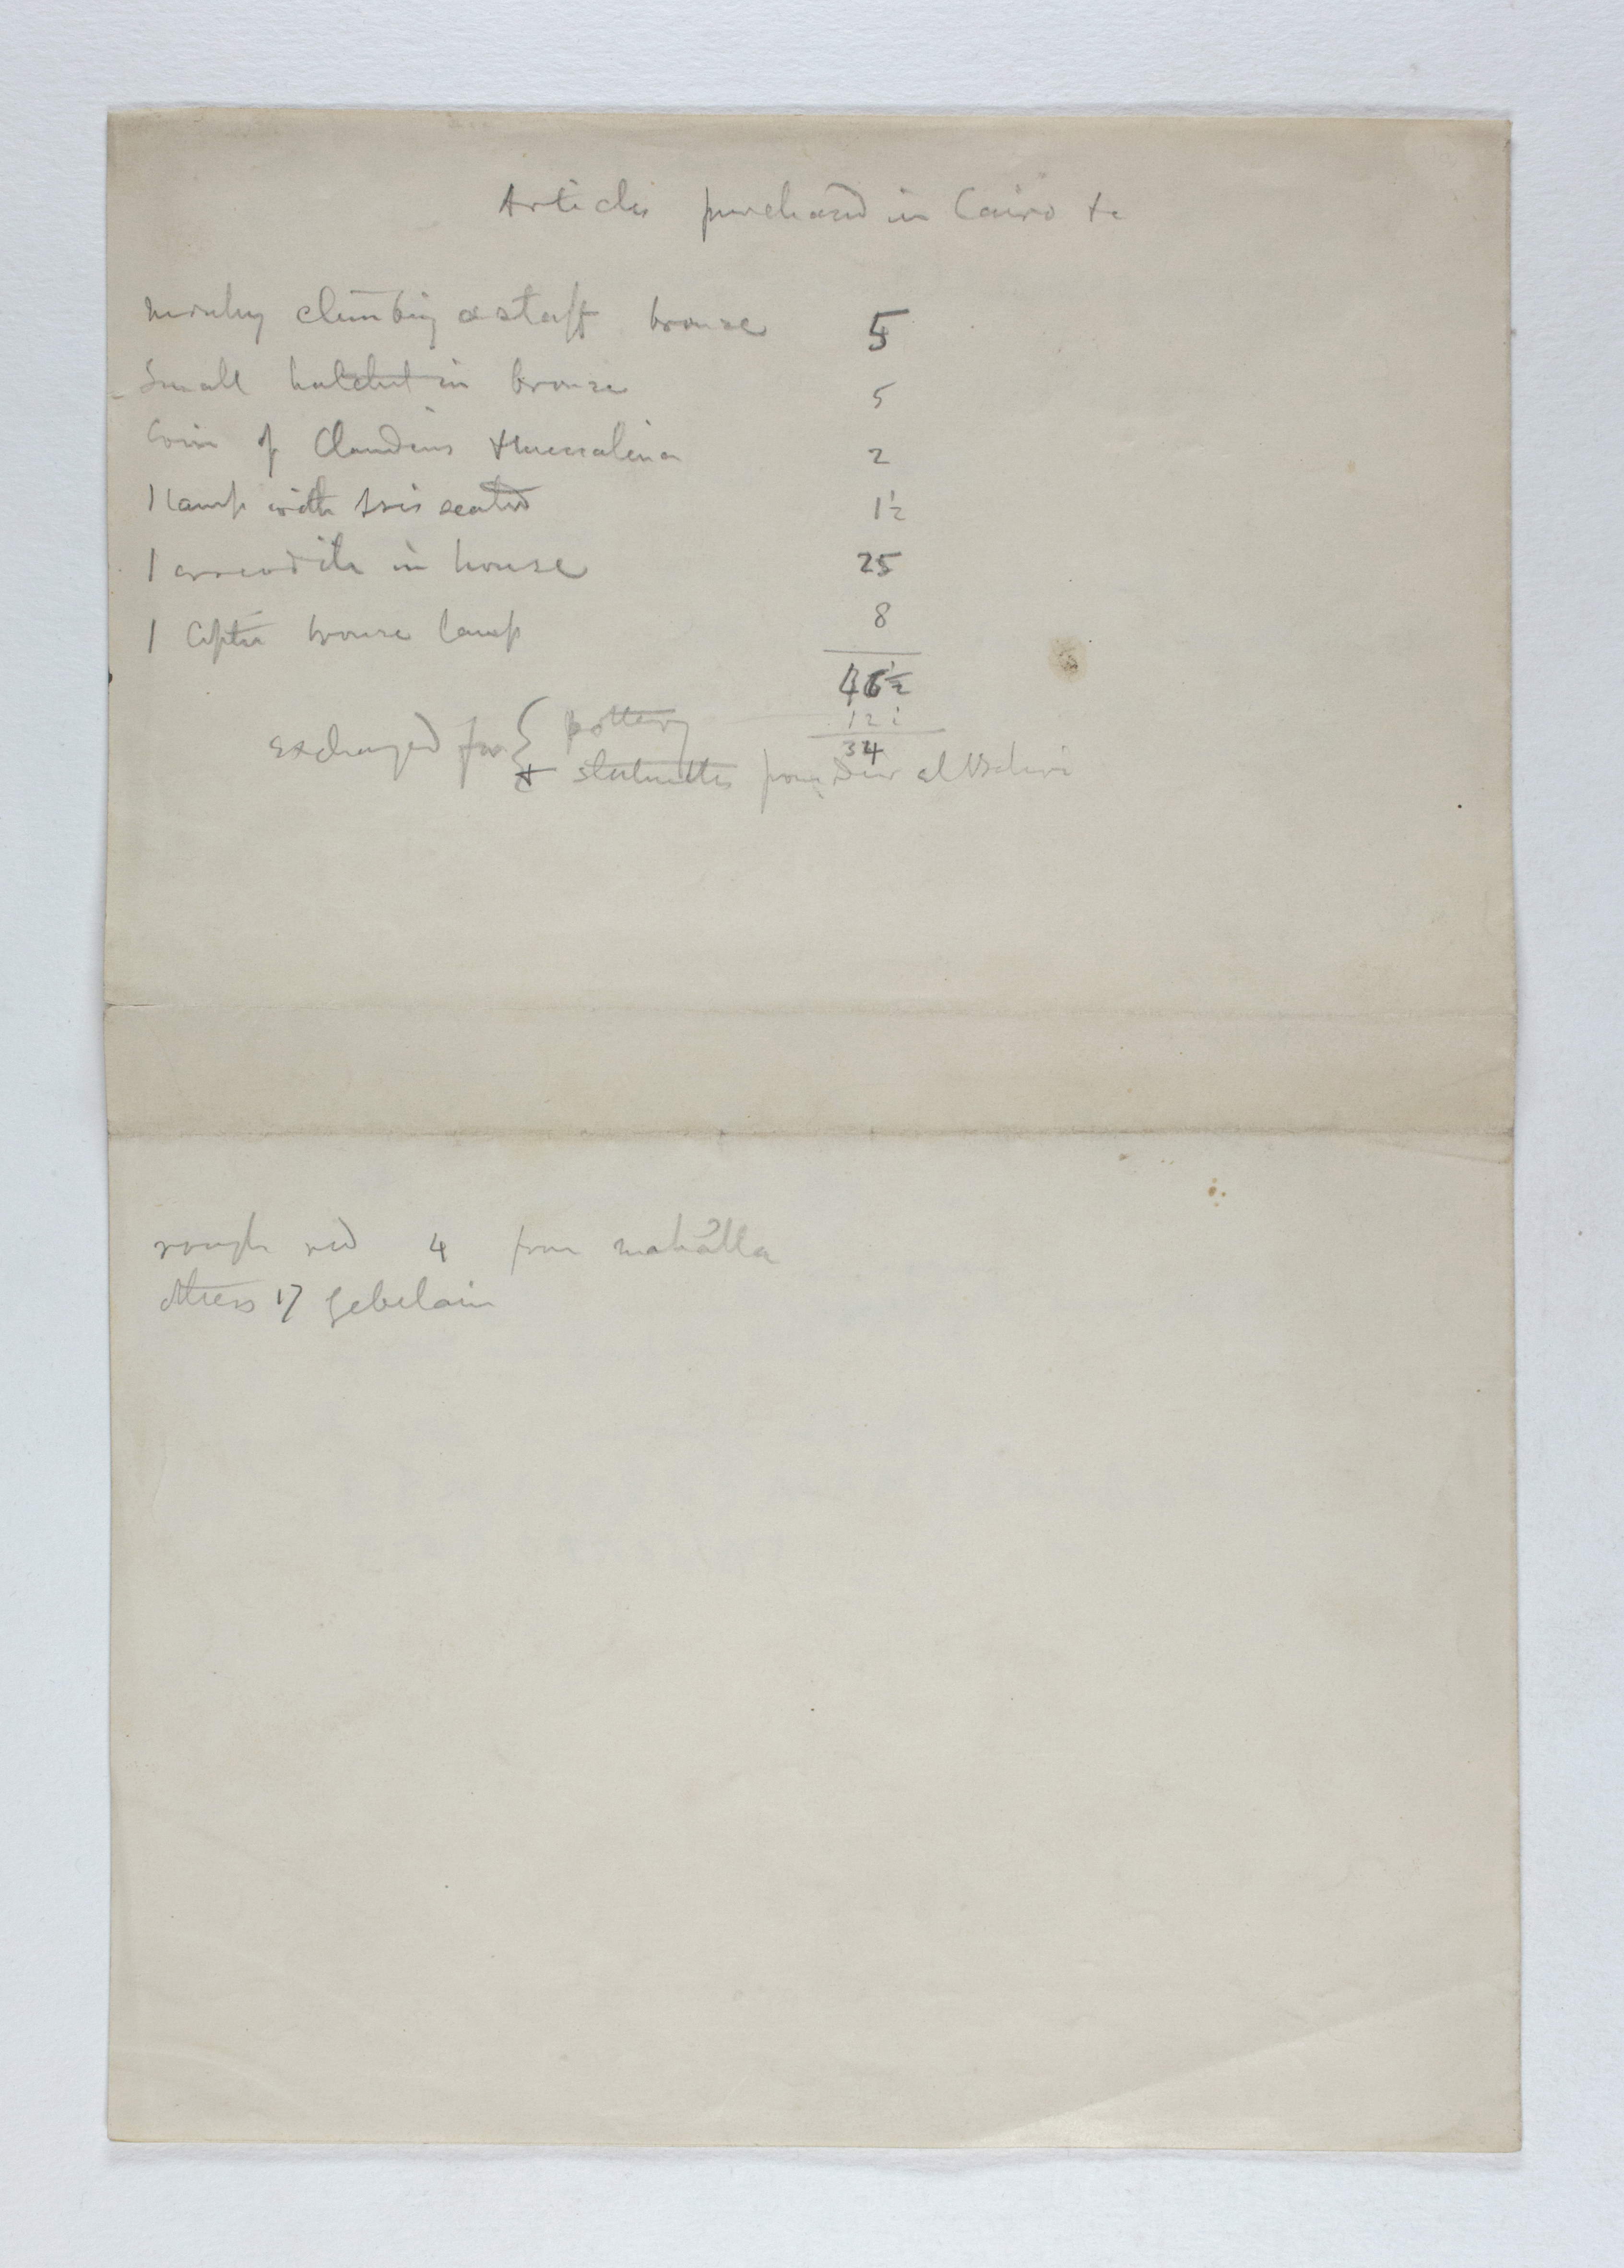 Articles purchased in Cairo &c
Monkey climbing a staff bronze 5
Small hatchet in bronze 5
Coin of Claudius & Messalina 2
1 lamp with Isis seated 1½
1 crocodile in bronze 25
1 Coptic bronze lamp 8
46½
12½
34
exchanged for { pottery
& statuettes from Deir al Bahari
rough red 4 from mahalla
others 17 Gebelain